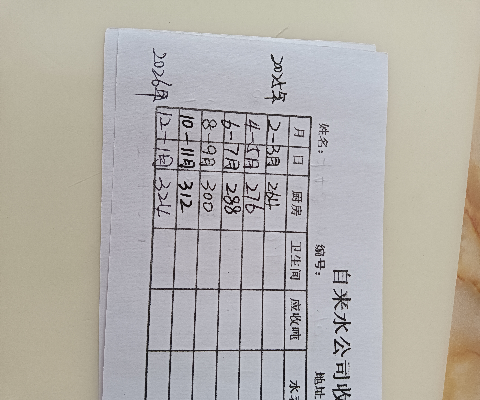 自来水公司收
姓名： 编号： 地址
2025年
月 日 厨房 卫生间 应收吨 水
2-3月 264
4-5月 276
6-7月 288
8-9月 300
10-11月 312
2026年
12-1月 324